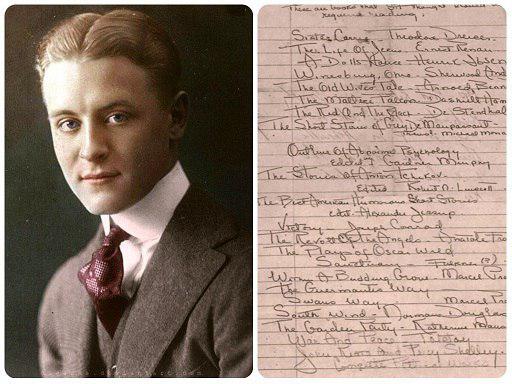 These are books that
required reading.
Sister Carrie - Theodore Dreiser.
The Life Of Jesus - Ernest Renan
A Dolls House - Henrik Ibsen
Winesburg, Ohio - Sherwood And
The Old Wives Tale - Arnold Benn
The Maltese Falcon - Dashiell Ham
The Red And The Black - De Stendhal
The Short Stories Of Guy De Maupassant
Michael Mona
Outline Of Abnormal Psychology
Edited Gardner Murphy
The Stories Of Anton Tchekov
Edited Robert N. Linscott
The Best American Humorous Short Stories
edit. Alexander Jessup
Victory Joseph Conrad
The Revolt Of The Angels Anatole Fra
The Plays Of Oscar Wilde
Sanctuary Faulkner
Within A Budding Grove - Marcel Pro
The Guermantes Way
Swanns Way - Marcel Pro
South Wind - Norman Douglas
The Garden Party - Katherine Mans
War And Peace - Tolstoy
John Keats And Percy Shelley
Complete Poetical Works